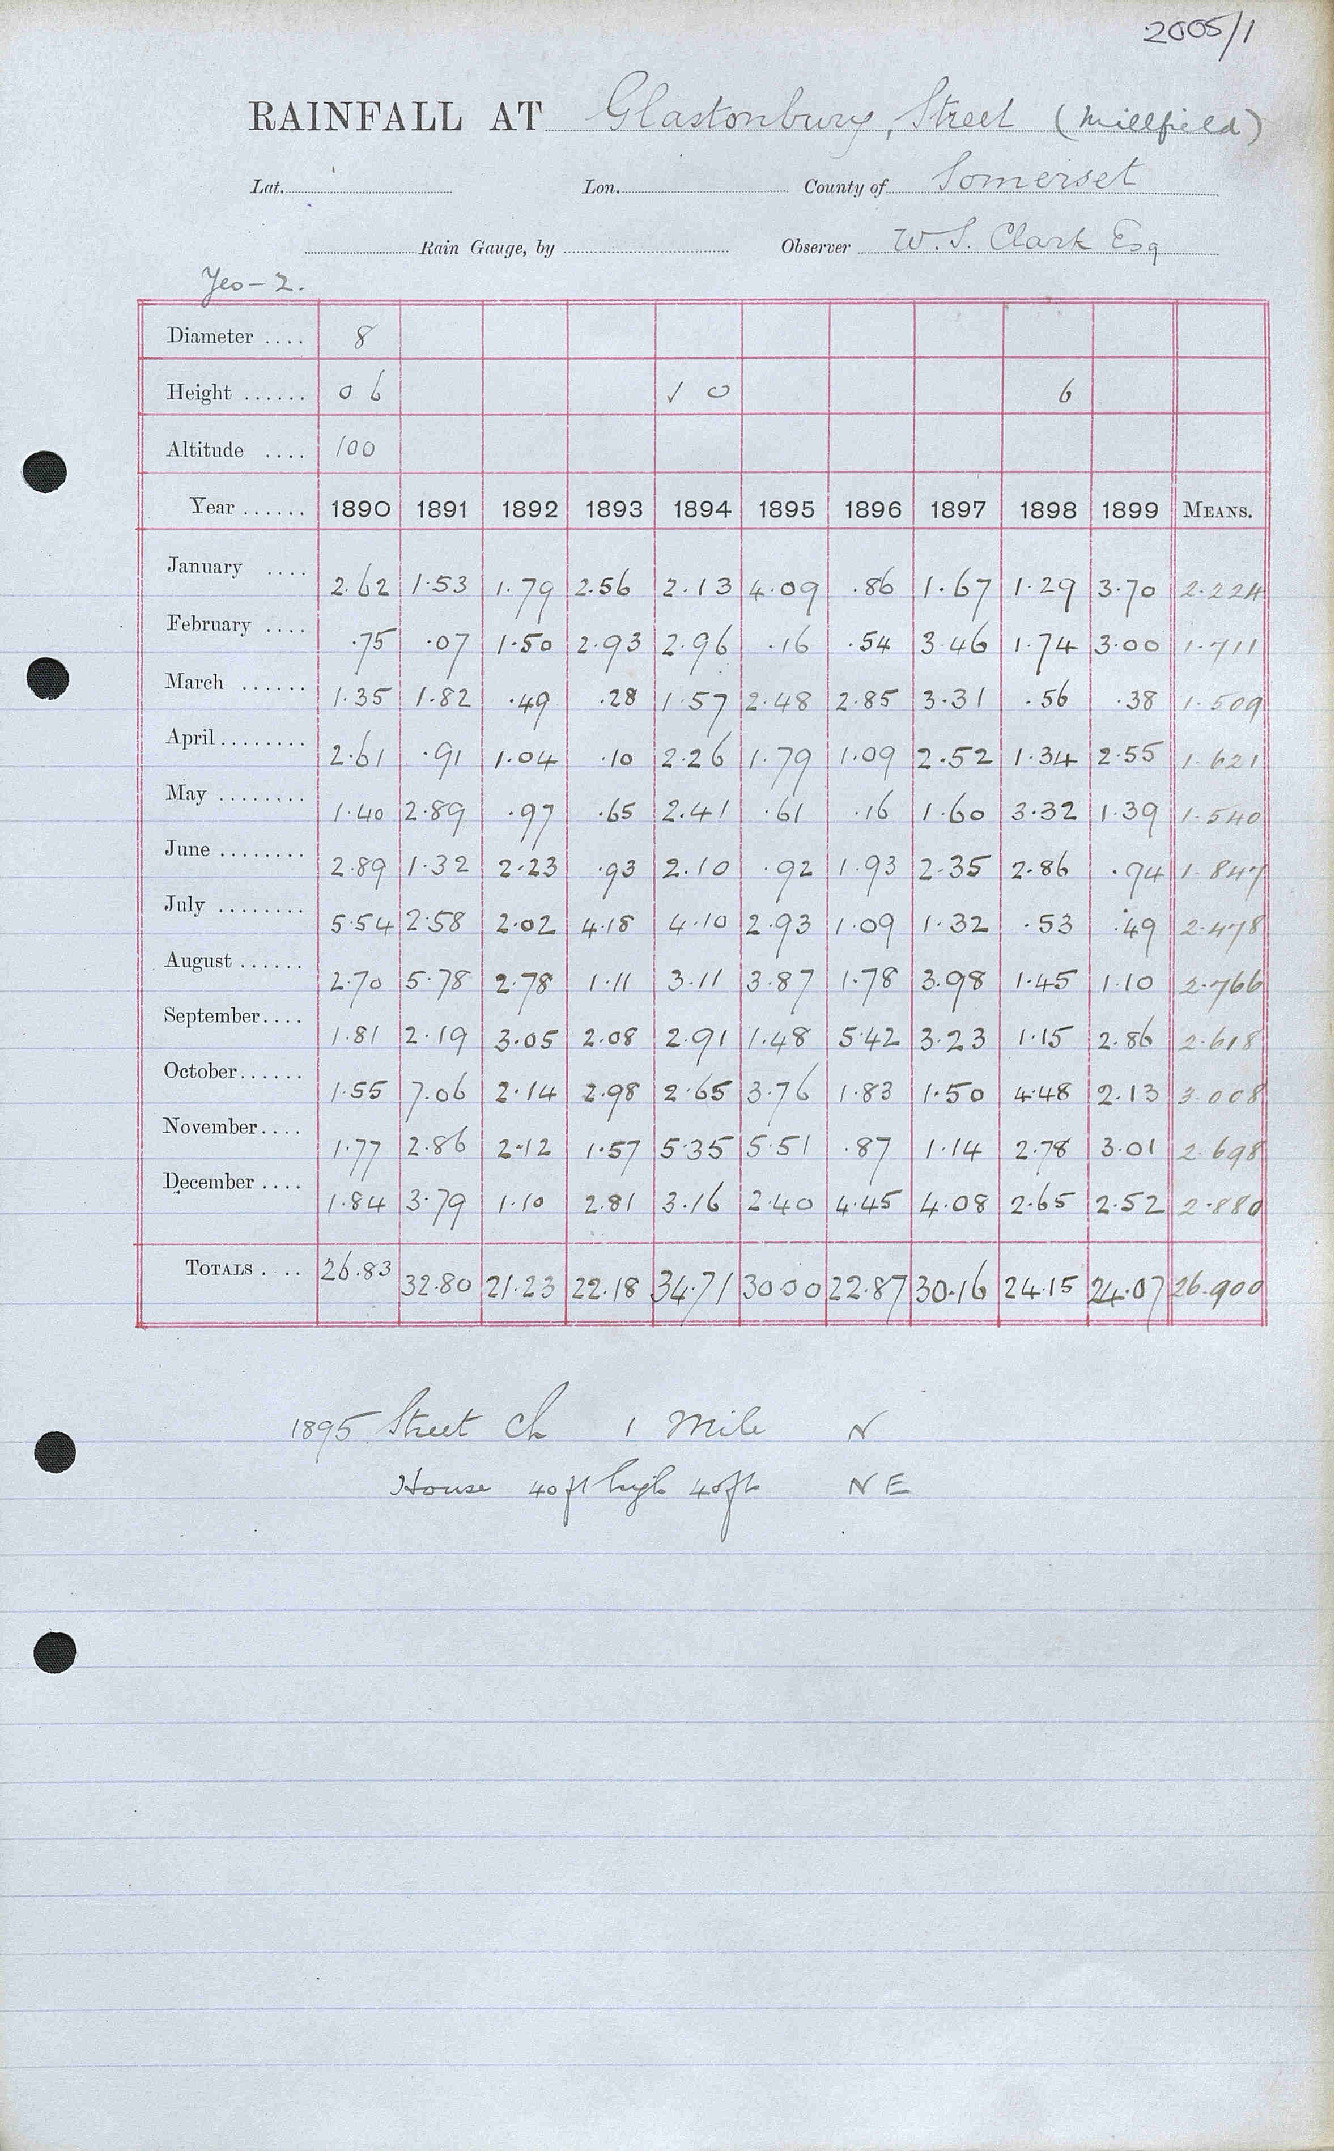 2005/1
RAINFALL AT Glastonbury, Street (Millfield)
Lat. Lon. County of Somerset
Rain Gauge, by Observer W. S. Clark Esq
Yeo - 2.
Diameter .... 8
Height ...... 0 6 1 0 6
Altitude .... 100
Year ...... 1890 1891 1892 1893 1894 1895 1896 1897 1898 1899 MEANS.
January .... 2.62 1.53 1.79 2.56 2.13 4.09 .86 1.67 1.29 3.70 2.224
February .... .75 .07 1.50 2.93 2.96 .16 .54 3.46 1.74 3.00 1.711
March ...... 1.35 1.82 .49 .28 1.57 2.48 2.85 3.31 .56 .38 1.509
April ........ 2.61 .91 1.04 .10 2.26 1.79 1.09 2.52 1.34 2.55 1.621
May ........ 1.40 2.89 .97 .65 2.41 .61 .16 1.60 3.32 1.39 1.540
June ........ 2.89 1.32 2.23 .93 2.10 .92 1.93 2.35 2.86 .94 1.847
July ........ 5.54 2.58 2.02 4.18 4.10 2.93 1.09 1.32 .53 .49 2.478
August ...... 2.70 5.78 2.78 1.11 3.11 3.87 1.78 3.98 1.45 1.10 2.766
September .... 1.81 2.19 3.05 2.08 2.91 1.48 5.42 3.23 1.15 2.86 2.618
October ...... 1.55 7.06 2.14 2.98 2.65 3.76 1.83 1.50 4.48 2.13 3.008
November .... 1.77 2.86 2.12 1.57 5.35 5.51 .87 1.14 2.78 3.01 2.698
December .... 1.84 3.79 1.10 2.81 3.16 2.40 4.45 4.08 2.65 2.52 2.880
TOTALS .... 26.83 32.80 21.23 22.18 34.71 30.00 22.87 30.16 24.15 24.07 26.900
1895 Street Ch 1 Mile N
House 40 ft high 40 ft NE